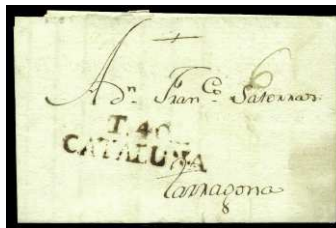 A dn. Franco. Saterras
T.40
CATALUÑA
Tarragona